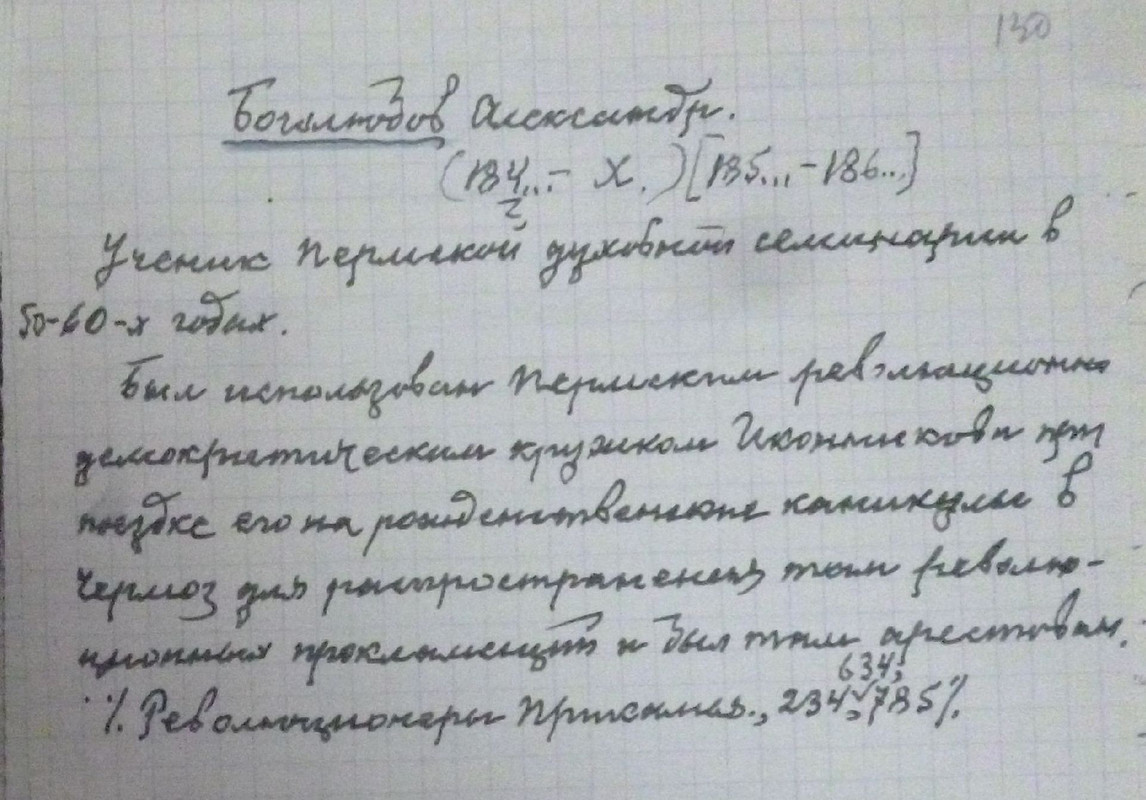 130
Боголюбов Александр.
(184...- X.) [185...-186...]
2
Ученик Пермской духовной семинарии в
50-60-х годах.
Был использован Пермским революционно
демократическим кружком Иконникова при
поездке его на рождественские каникулы в
Чермоз для распространения там револю-
ционных прокламаций и был там арестован.
634;
%. Революционеры Прикамья., 234; 785%.